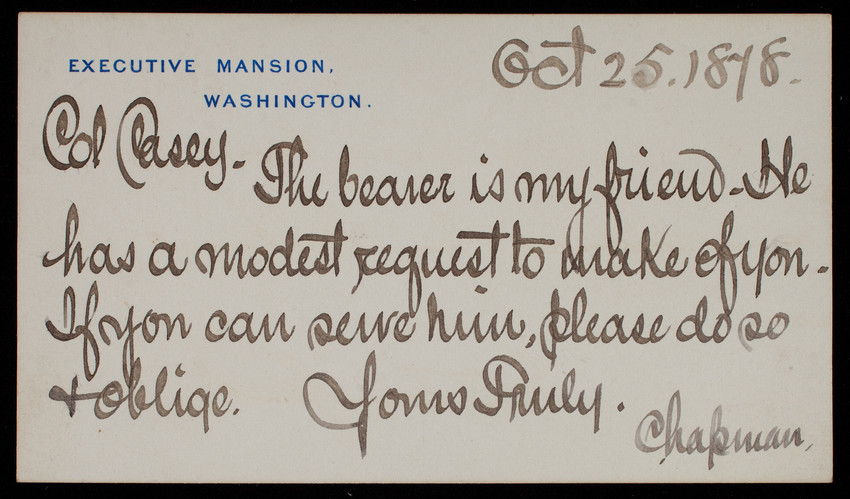 EXECUTIVE MANSION,
WASHINGTON.
Oct 25. 1878.
Col Casey - The bearer is my friend - He
has a modest request to make of you -
If you can serve him, please do so
& oblige. Yours Truly.
Chapman,